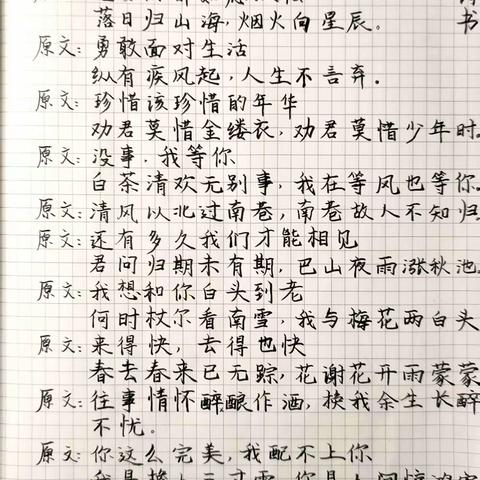 落日归山海,烟火向星辰。
书
原文:勇敢面对生活
纵有疾风起,人生不言弃.
原文:珍惜该珍惜的年华
劝君莫惜金缕衣,劝君莫惜少年时.
原文:没事.我等你
白茶清欢无别事,我在等风也等你.
原文:清风以北过南巷,南巷故人不知归
原文:还有多久我们才能相见
君问归期未有期,巴山夜雨涨秋池.
原文:我想和你白头到老
何时杖尔看南雪,我与梅花两白头
原文:来得快,去得也快
春去春来已无踪,花谢花开雨蒙蒙
原文:往事情怀醉酿作酒,换我余生长醉
不忧。
原文:你这么完美,我配不上你